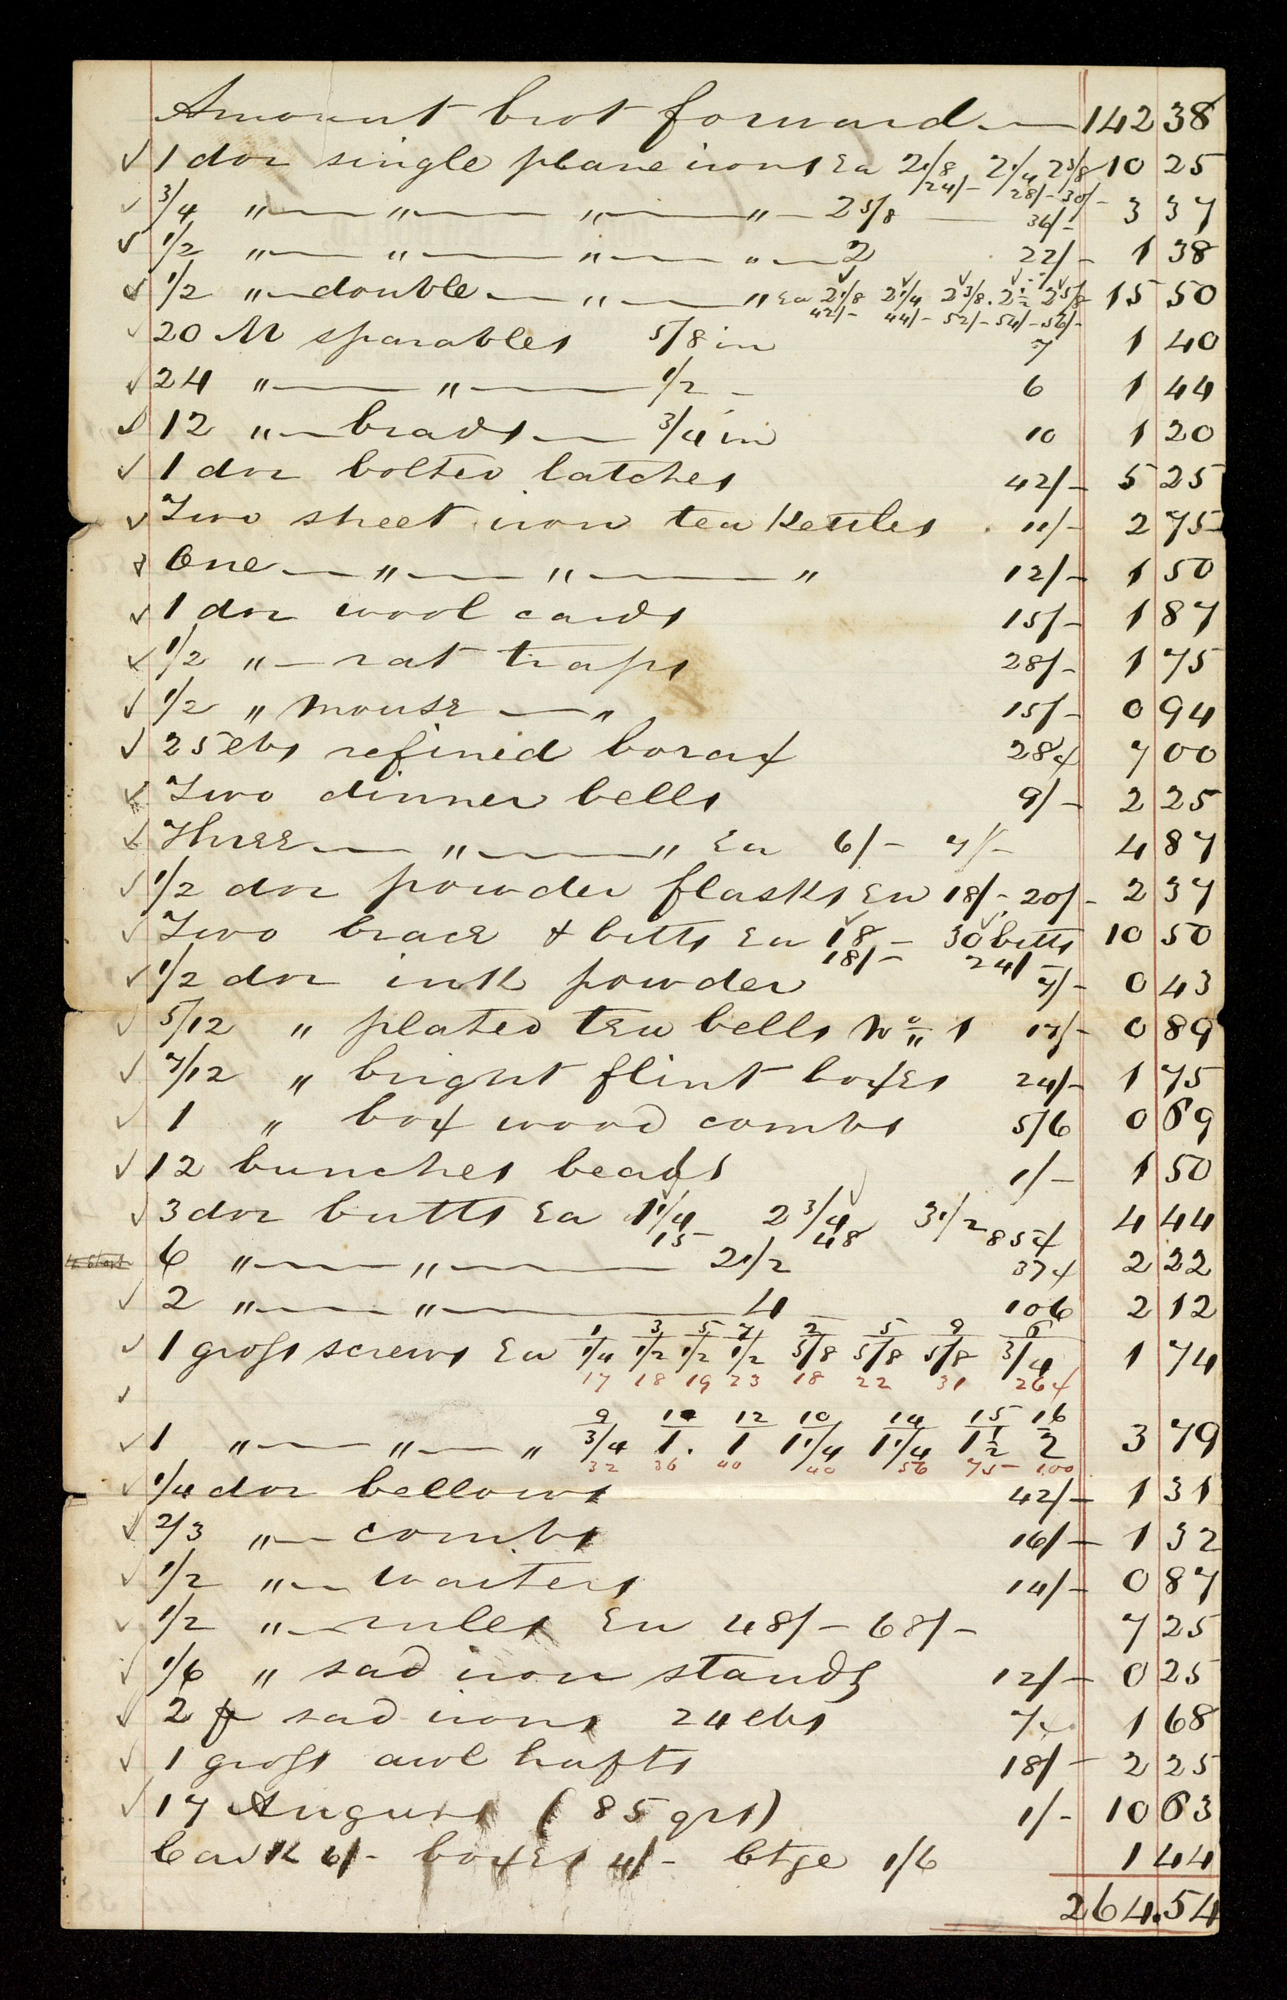 Amount brot forward 142 38
1 doz single plane irons Ea 2 1/8 2 1/4 2 3/8 10 25
24/- 28/- 30/-
3/4 " " " " 2 5/8 36/- 3 37
1/2 " " " " 2 22/- 1 38
1/2 " double " " Ea 2 1/8 2 1/4 2 3/8 2 1/2 2 5/8 15 50
42/- 44/- 52/- 54/- 56/-
20 M sparables 5/8 in 7 1 40
24 " " 1/2 6 1 44
12 " brads 3/4 in 10 1 20
1 doz bolted latches 42/- 5 25
Two sheet iron tea kettles 11/- 2 75
One " " " 12/- 1 50
1 doz wool cards 15/- 1 87
1/2 " rat traps 28/- 1 75
1/2 " mouse " 15/- 0 94
25 lbs refined borax 28¢ 7 00
Two dinner bells 9/- 2 25
Three " " Ea 6/- 7/- 4 87
1/2 doz powder flasks Ea 18/- 20/- 2 37
Two brace & bitts Ea 18 - 30 bitts 10 50
18/- 24/-
1/2 doz ink powder 7/- 0 43
5/12 " plated tea bells No 1 17/- 0 89
7/12 " bright flint boxes 24/- 1 75
1 " box wood combs 5/6 0 69
12 bunches beads 1/- 1 50
3 doz butts Ea 1 1/4 2 3/4 3 1/2 85¢ 4 44
15 48
6 " " 2 1/2 37¢ 2 22
2 " " 4 106 2 12
1 3 5 7 2 5 9 6
1 gross screws Ea 1/4 1/2 1/2 1/2 5/8 5/8 5/8 3/4 1 74
17 18 19 23 18 22 31 26¢
9 10 12 10 14 15 16
1 " " " 3/4 1. 1 1 1/4 1 1/4 1 1/2 2 3 79
32 36 40 40 56 75 100
1/4 doz bellows 42/- 1 31
2/3 " combs 16/- 1 32
1/2 " waiters 14/- 0 87
1/2 " rules Ea 48/- 68/- 7 25
1/6 " sad iron stands 12/- 0 25
2 pr sad irons 24 lbs 7¢ 1 68
1 gross awl hafts 18/- 2 25
17 Augurs (85 qrs) 1/- 10 63
Cask 6/- boxes 4/- Ctge 1/6 1 44
264.54